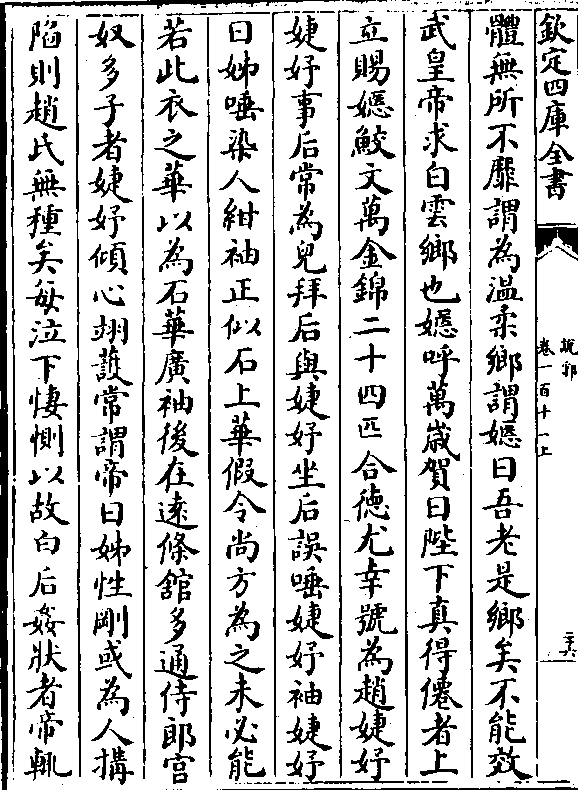 欽定四庫全書
說郛
卷一百十一上
二十六
體無所不靡謂為溫柔鄉謂嫕曰吾老是鄉矣不能效
武皇帝求白雲鄉也嫕呼萬歲賀曰陛下真得僊者上
立賜嫕鮫文萬金錦二十四匹合德尤幸號為趙婕妤
婕妤事后常為兒拜后與婕妤坐后誤唾婕妤袖婕妤
曰姊唾染人紺袖正似石上華假令尚方為之未必能
若此衣之華以為石華廣袖後在逺條館多通侍郎宫
奴多子者婕妤傾心翊護常謂帝曰姊性剛或為人搆
陷則趙氏無種矣每泣下悽惻以故白后姦狀者帝輒